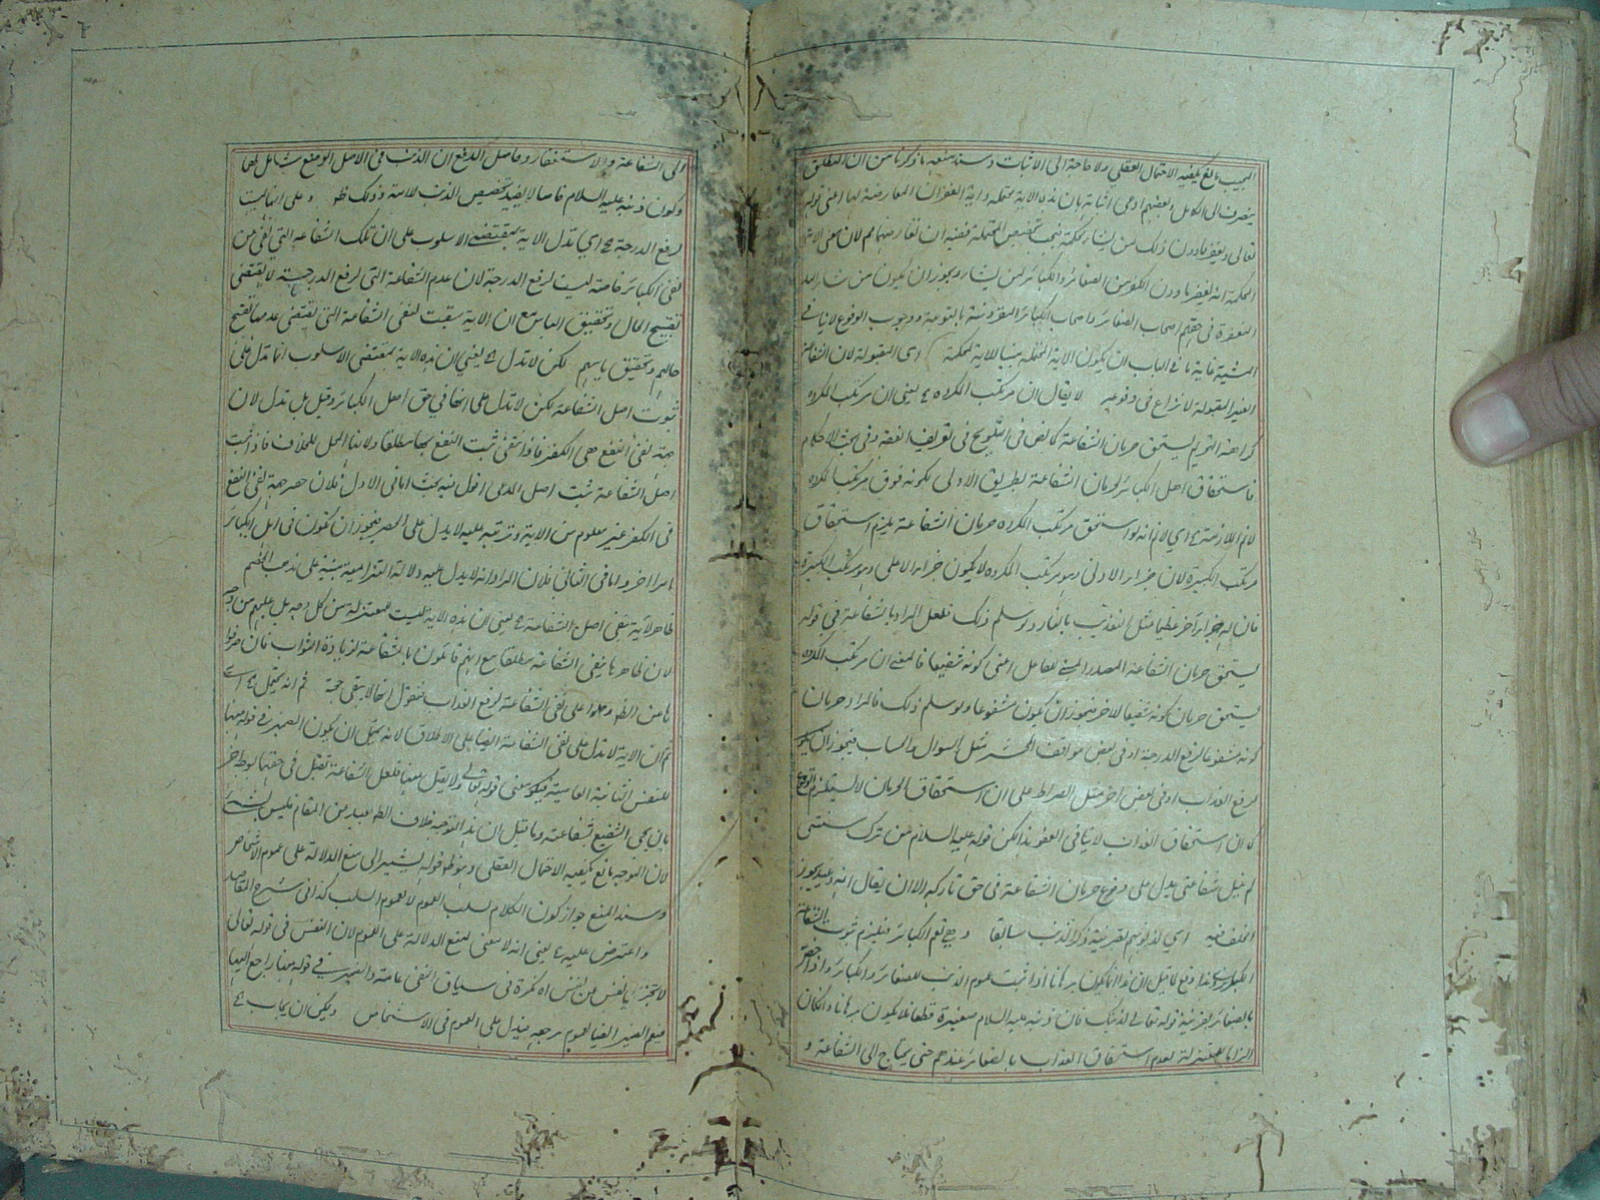 المجيب مانع يكفيه الاحتمال العقلي ولا حاجة الى الاثبات وسند منعه ما ذكرنا من ان المطلق
ينصرف الى الكامل وبعضهم ادعى اثباته بان هذه الآية محتملة وآية الغفران المعارضة لها اعني قوله
تعالى ويغفر ما دون ذلك لمن يشاء محكمة فيجب تخصيص المحتملة فيه ان تعارضهما مم لان معنى الآية
المحكمة انه يغفر ما دون الكفر من الصغائر والكبائر لمن يشاء ويجوز ان يكون من شاء الله
المغفرة في حقهم اصحاب الصغائر واصحاب الكبائر المقرونة بالتوبة ووجوب الوقوع لا ينافي
المشية غاية ما في الباب ان يكون الآية المحتملة مبينا للآية المحكمة اى المقبولة لان الشفاعة
الغير المقبولة لا نزاع في وقوعه لا يقال ان مرتكب المكروه ے يعني ان مرتكب المكروه
كراهة التحريم يستحق حرمان الشفاعة كما نص في التلويح في تعريف الفقه وفي بحث الاحكام
فاستحقاق اهل الكبائر لحرمان الشفاعة بطريق الاولى لكونه فوق مرتكب المكروه
لانم الملازمة ے اي لانم انه لو استحق مرتكب المكروه حرمان الشفاعة يلزم استحقاق
مرتكب الكبيرة لان جزاء الادنى وهو مرتكب المكروه لا يكون جزاء الاعلى وهو مرتكب الكبيرة
فان له جزاء آخر عظيما مثل التعذيب بالنار ولو سلم ذلك فلعل المراد بالشفاعة في قوله
يستحق حرمان الشفاعة المصدر المبني للفاعل اعني كونه شفيعا فالمعنى ان مرتكب المكروه
يستحق حرمان كونه شفيعا لآخر فيجوز ان يكون مشفوعا ولو سلم ذلك فالمراد حرمان
كونه مشفوعا لرفع الدرجة او في بعض مواقف المحشر مثل السؤال والحساب فيجوز ان يكون
لرفع العذاب او في بعض آخر مثل الصراط على ان استحقاق الحرمان لا يستلزم الوقوع
كما ان استحقاق العذاب لا ينافي العفو هذا لكن قوله عليه السلام من ترك سنتي
لم ينل شفاعتي يدل على وقوع حرمان الشفاعة في حق تاركه الا ان يقال انه وعيد يجوز
الخلف فيه اي لذنوبهم بقرينة ذكر الذنب سابقا وهي تعم الكبائر فيلزم ثبوت الشفاعة
لاهل الكبائر هذا دفع لما قيل ان هذا انما يكون برهانا اذا ثبت عموم الذنب للصغائر والكبائر واما اذا خص
بالصغائر بقرينة قوله تعالى لذنبك فان ذنبه عليه السلام صغيرة قطعا فلا يكون برهانا وان كان
الزاما للمعتزلة لعدم استحقاق العذاب بالصغائر عندهم حتى يحتاج الى الشفاعة و
الى الشفاعة والاستغفار وحاصل الدفع ان الذنب في الاصل الوضع شامل لهما
وكون ذنبه عليه السلام خاصا لا يفيد تخصيص الذنب للامة وذلك ظ وعلى انها ليست
لرفع الدرجة ے اي تدل الآية بمقتضى الاسلوب على ان تلك الشفاعة التي نفي من
نفي الكبائر خاصة ليست لرفع الدرجة لان عدم الشفاعة التي لرفع الدرجة لا يقتضي
تقبيح الحال وتحقيق الياس مع ان الآية سيقت لنفي الشفاعة التي يقتضي عدمها تقبيح
حالهم وتحقيق ياسهم لكن لا تدل ے يعني ان هذه الآية بمقتضى الاسلوب انما تدل على
ثبوت اصل الشفاعة لكن لا تدل على انها في حق اهل الكبائر وقيل بل تدل لان
جهة نفي النفع هي الكفر فاذا انتفى ثبت النفع بها مطلقا ولانها المحل للخلاف فاذا ثبت
اصل الشفاعة ثبت اصل المدعى اقول فيه بحث اما في الاول فلان حصر جهة نفي النفع
في الكفر غير معلوم من الآية وترتبه عليه لا يدل على الحصر فيجوز ان يكون في اهل الكبائر
امرا آخر واما في الثاني فلان المراد انه لا يدل عليه دلالة التزامية مبنية على مذهب الخصم
ظاهر الآية تنفي اصل الشفاعة ے يعني ان هذه الآية ليست للمعتزلة من كل وجه بل عليهم من وجه
لان ظاهرها ينفي الشفاعة مطلقا مع انهم قائلون بالشفاعة لزيادة الثواب فان صرفوا
ها من الظ وحملوا على نفي الشفاعة لرفع العذاب فنقول انها لا يبقى حجة ثم انه يحتمل ے اى
ثم ان الآية لا تدل على نفي الشفاعة ايضا على الاطلاق لانه يحتمل ان يكون الضمير في قوله منها
للنفس الثانية العاصية فيكون معنى قوله تعالى ولا يقبل منها فلعل الشفاعة تقبل في حقها بوجه آخر
بان يجئ الشفيع بشفاعته وما قيل ان هذا التوجيه خلاف الظ بعيد من المقام فليس بشئ
لان الموجه مانع يكفيه الاحتمال العقلي قوله يشير الى منع الدلالة على عموم الاشخاص
وسند المنع جواز كون الكلام لسلب العموم لا لعموم السلب كذا في شرح المقاصد
واعترض عليه ے يعني انه لا معنى لمنع الدلالة على العموم لان النفس في قوله تعالى
لا تجزى نفس عن نفس اه نكرة في سياق النفي عامة والضمير في قوله منها راجع اليها
فيعم الضمير ايضا لعموم مرجعه فيدل على العموم في الاشخاص ويمكن ان يجاب ے